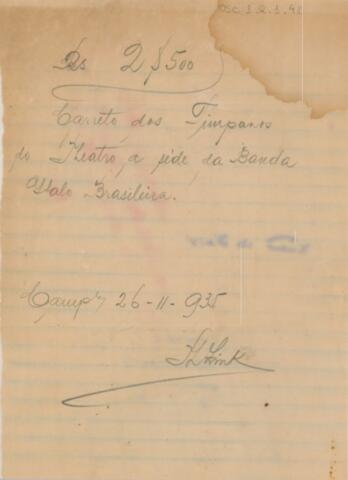 OSC.1.2.1.41
Rs 2$500
Carreto dos Timpanos
do Theatro a séde da Banda
Italo Brasileira.
Camp. 26-11-935